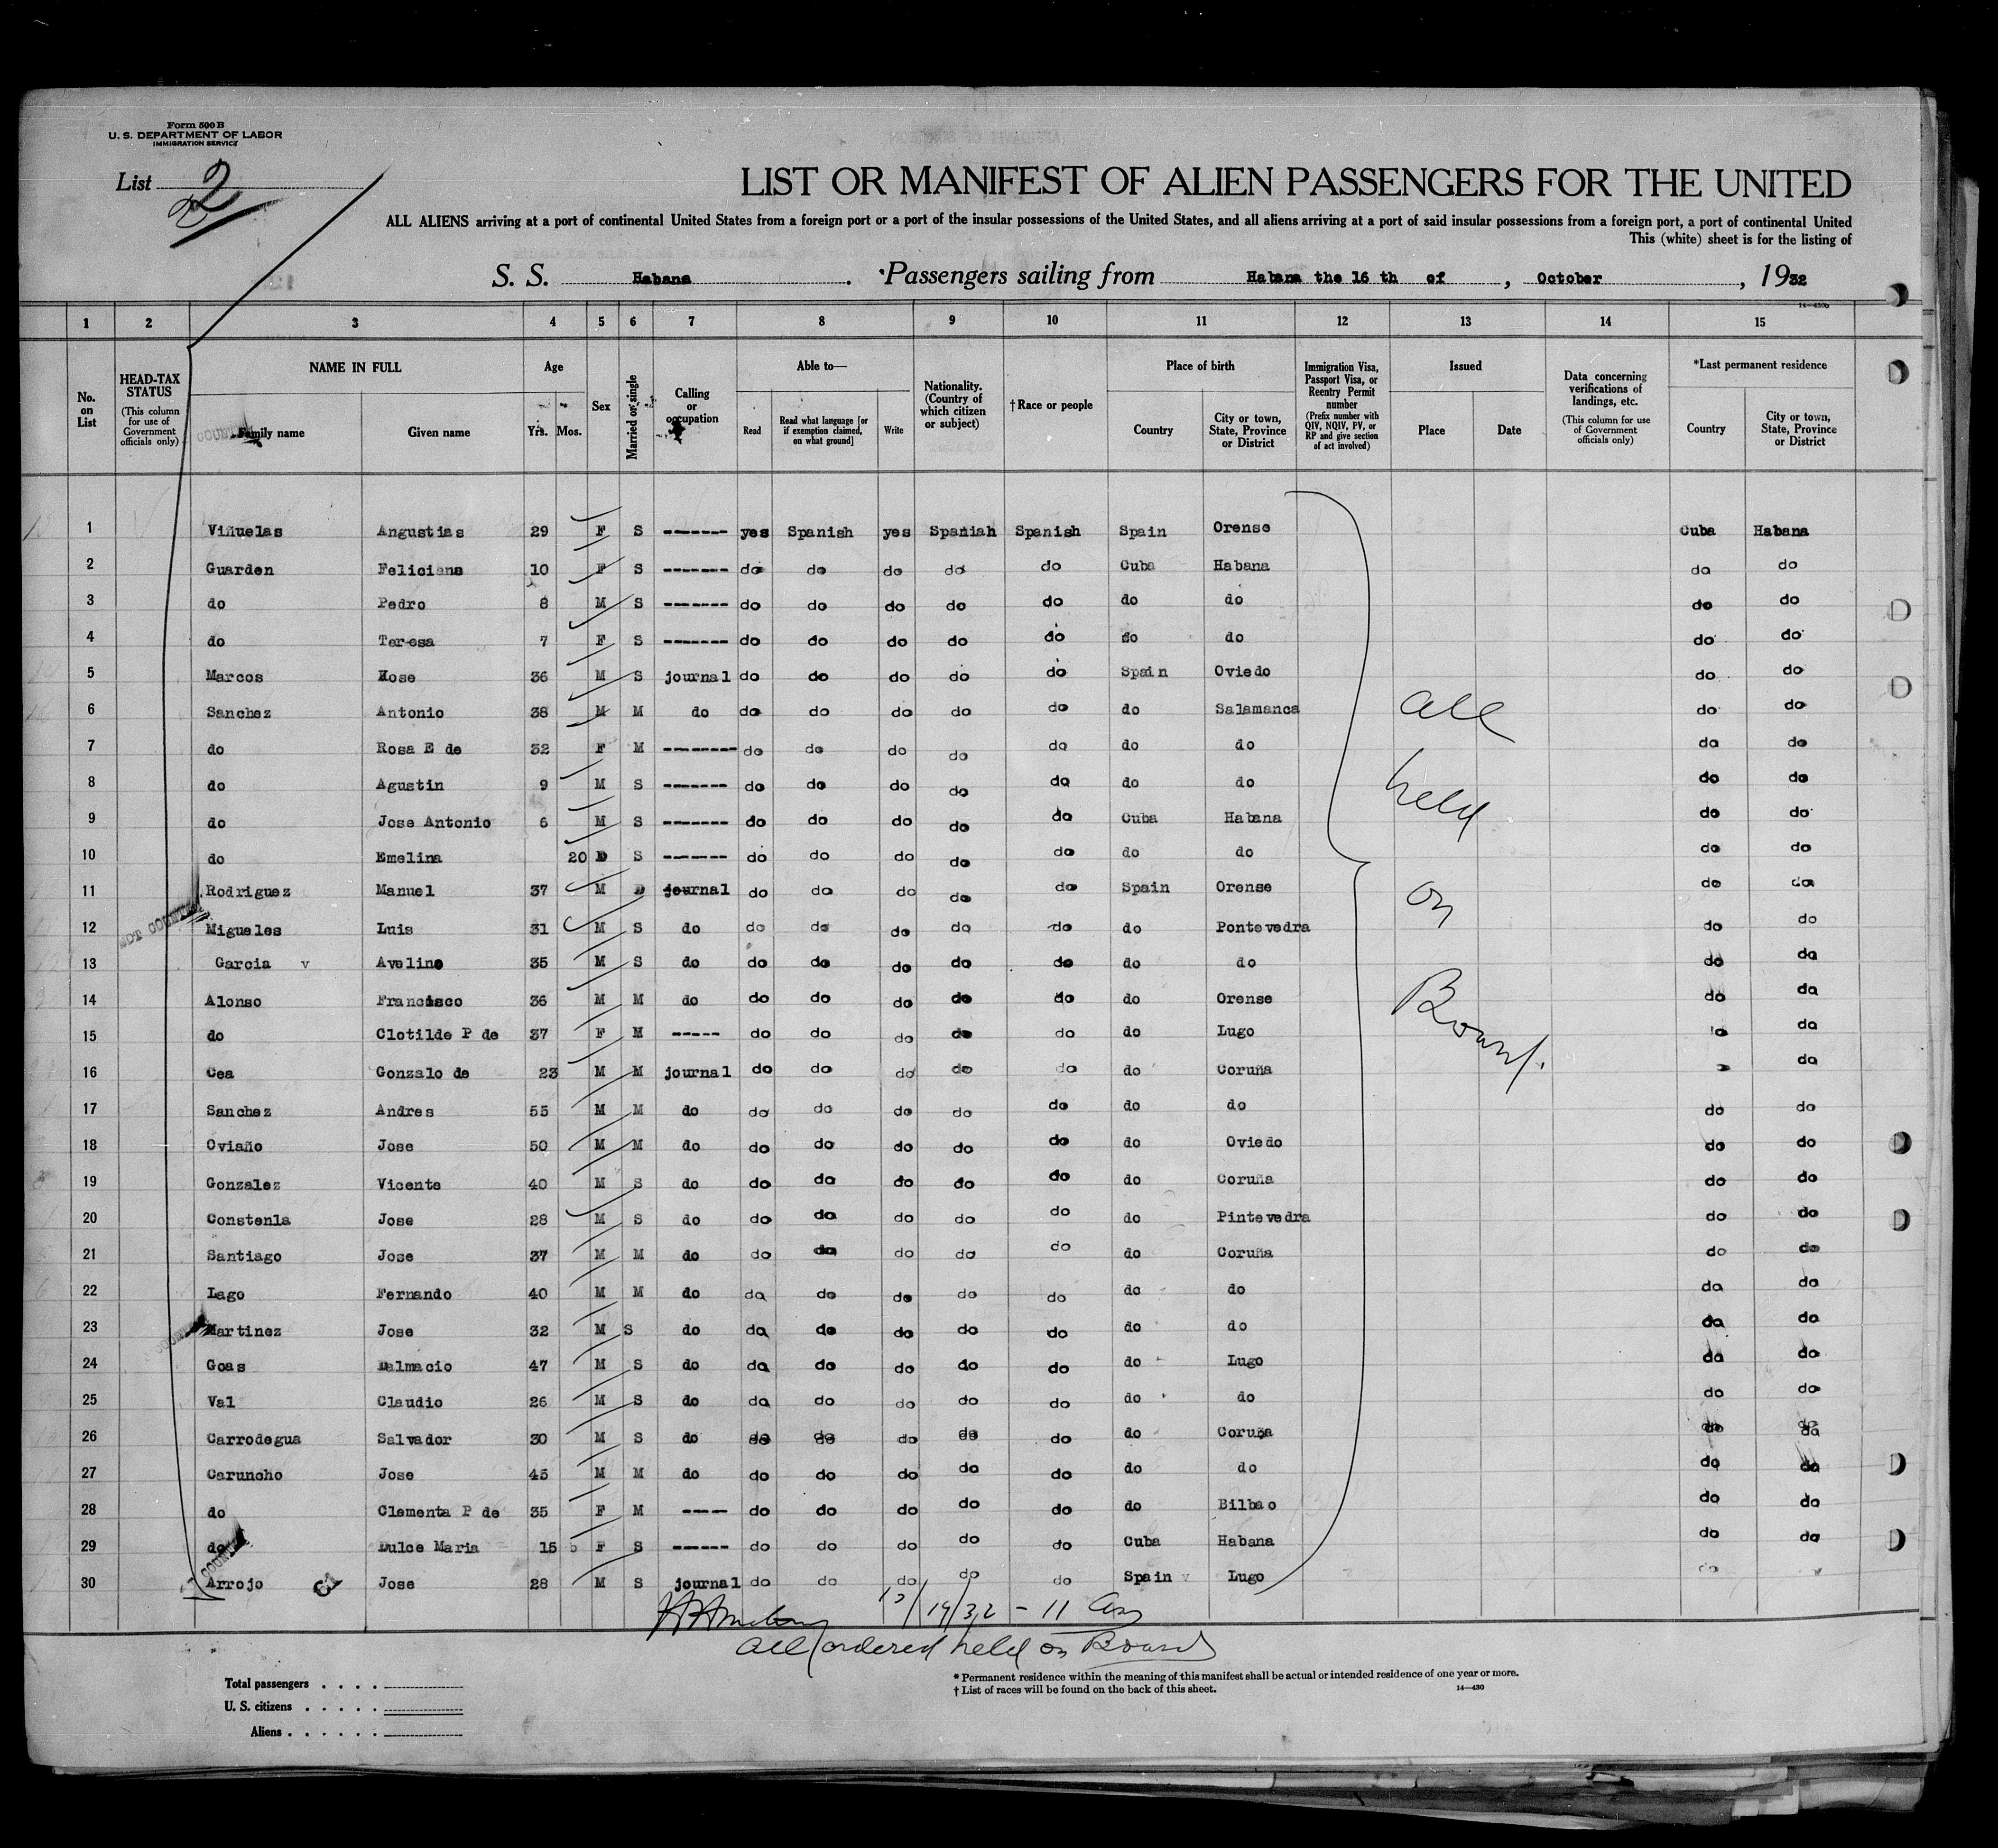 Form 500 B
U. S. DEPARTMENT OF LABOR
IMMIGRATION SERVICE
List 2
LIST OR MANIFEST OF ALIEN PASSENGERS FOR THE UNITED
ALL ALIENS arriving at a port of continental United States from a foreign port or a port of the insular possessions of the United States, and all aliens arriving at a port of said insular possessions from a foreign port, a port of continental United
This (white) sheet is for the listing of
S. S. Habana . Passengers sailing from Habana the 16 th of , October , 1932
14—430b
1 2 3 4 5 6 7 8 9 10 11 12 13 14 15
No. on List
HEAD-TAX STATUS (This column for use of Government officials only)
NAME IN FULL Family name Given name
Age Yrs. Mos.
Sex
Married or single
Calling or occupation
Able to— Read Read what language [or if exemption claimed, on what ground] Write
Nationality. (Country of which citizen or subject)
†Race or people
Place of birth Country City or town, State, Province or District
Immigration Visa, Passport Visa, or Reentry Permit number (Prefix number with QIV, NQIV, PV, or RP and give section of act involved)
Issued Place Date
Data concerning verifications of landings, etc. (This column for use of Government officials only)
*Last permanent residence Country City or town, State, Province or District
1 Viñuelas Angustias 29 F S ------- yes Spanish yes Spaniah Spanish Spain Orense Cuba Habana
2 Guarden Feliciana 10 F S ------- do do do do do Cuba Habana do do
3 do Pedro 8 M S ------- do do do do do do do do do
4 do Teresa 7 F S ------- do do do do do do do do do
5 Marcos Xose 36 M S journal do do do do do Spain Oviedo do do
6 Sanchez Antonio 38 M M do do do do do do do Salamanca do do
7 do Rosa E de 32 F M -------- do do do do do do do do do
8 do Agustin 9 M S ------- do do do do do do do do do
9 do Jose Antonio 6 M S ------- do do do do do Cuba Habana do do
10 do Emelina 20 S ------- do do do do do do do do do
11 Rodriguez Manuel 37 M journal do do do do do Spain Orense do do
12 Migueles Luis 31 M S do do do do do do do Pontevedra do do
13 Garcia v Aveline 35 M S do do do do do do do do do do
14 Alonso Francisco 36 M M do do do do do do do Orense do do
15 do Clotilde P de 37 F M ----- do do do do do do Lugo do
16 Cea Gonzalo de 23 M M journal do do do do do do Coruña do
17 Sanchez Andres 55 M M do do do do do do do do do do
18 Oviaño Jose 50 M M do do do do do do do Oviedo do do
19 Gonzalez Vicente 40 M S do do do do do do do Coruña do do
20 Constenla Jose 28 M S do do do do do do do Pintevedra do do
21 Santiago Jose 37 M M do do do do do do do Coruña do do
22 Lago Fernando 40 M M do do do do do do do do do do
23 Martinez Jose 32 M S do do do do do do do do do do
24 Goas Dalmacio 47 M S do do do do do do do Lugo do do
25 Val Claudio 26 M S do do do do do do do do do do
26 Carrodegua Salvador 30 M S do do do do do do do Coruña do do
27 Caruncho Jose 45 M M do do do do do do do do do do
28 do Clementa P de 35 F M ---- do do do do do do Bilbao do do
29 do Dulce Maria 15 F S ------ do do do do do Cuba Habana do do
30 Arrojo Jose 28 M S journal do do do do do Spain Lugo
all
held
on
Board.
/19/32 - 11
all ordered held on Board
Total passengers . . . .
U. S. citizens . . . . .
Aliens . . . . . .
* Permanent residence within the meaning of this manifest shall be actual or intended residence of one year or more.
† List of races will be found on the back of this sheet.
14—430